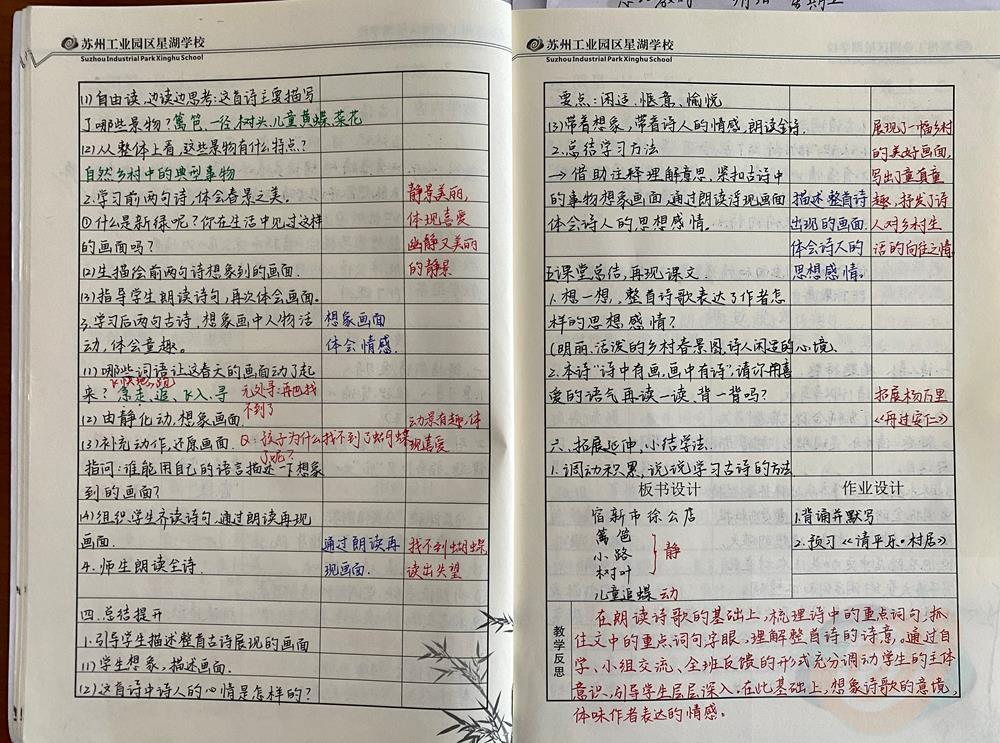 苏州工业园区星湖学校
Suzhou Industrial Park Xinghu School
(1)自由读,边读边思考:这首诗主要描写
了哪些景物?篱笆、一径、树头、儿童、黄蝶、菜花
(2)从整体上看,这些景物有什么特点?
自然乡村中的典型事物
2.学习前两句诗,体会春景之美。
静景美丽,
①什么是新绿呢?你在生活中见过这样
体现喜爱
的画面吗?
幽静又美丽
(2)生描绘前两句诗想象到的画面.
的静景
(3)指导学生朗读诗句,再次体会画面。
3.学习后两句古诗,想象画中人物活
想象画面
动,体会童趣。
体会情感.
(1)哪些词语让这春天的画面动了起
来?急走、追、飞入、寻
飞快地跑
无处寻:再也找
不到了
(2)由静化动,想象画面
动景有趣,体
(3)补充动作,还原画面.
Q:孩子为什么找不到了蝴蝶
了呢?
现喜爱
指问:谁能用自己的语言描述一下想象
到的画面?
(4)组织学生齐读诗句,通过朗读再现
画面.
通过朗读再
找不到蝴蝶,
4.师生朗读全诗.
现画面.
读出失望
四.总结提升
1.引导学生描述整首古诗展现的画面
(1)学生想象,描述画面.
(2)这首诗中诗人的心情是怎样的?
苏州工业园区星湖学校
Suzhou Industrial Park Xinghu School
要点:闲适、惬意、愉悦
(3)带着想象,带着诗人的情感,朗读全诗.
展现了一幅乡村
2.总结学习方法
的美好画面,
→借助注释理解意思,紧扣古诗中
写出了童真童
的事物想象画面,通过朗读诗现画面
描述整首诗
趣,抒发了诗
体会诗人的思想感情。
出现的画面.
人对乡村生
体会诗人的
活的向往之情.
五.课堂总结,再现课文
思想感情。
1.想一想,整首诗歌表达了作者怎
样的思想感情?
(明丽、活泼的乡村春景图,诗人闲适的心境.
2.本诗“诗中有画,画中有诗”,请你用喜
爱的语气再读一读,背一背吗?
拓展杨万里
《再过安仁》
六.拓展延伸,小结学法.
1.调动积累,说说学习古诗的方法
板书设计
作业设计
宿新市徐公店
1.背诵并默写
篱笆
小路
树叶
静
2.预习《清平乐·村居》
儿童追蝶 动
教学反思
在朗读诗歌的基础上,梳理诗中的重点词句,抓
住文中的重点词句字眼,理解整首诗的诗意,通过自
学、小组交流、全班反馈的形式充分调动学生的主体
意识,引导学生层层深入.在此基础上,想象诗歌的意境,
体味作者表达的情感。